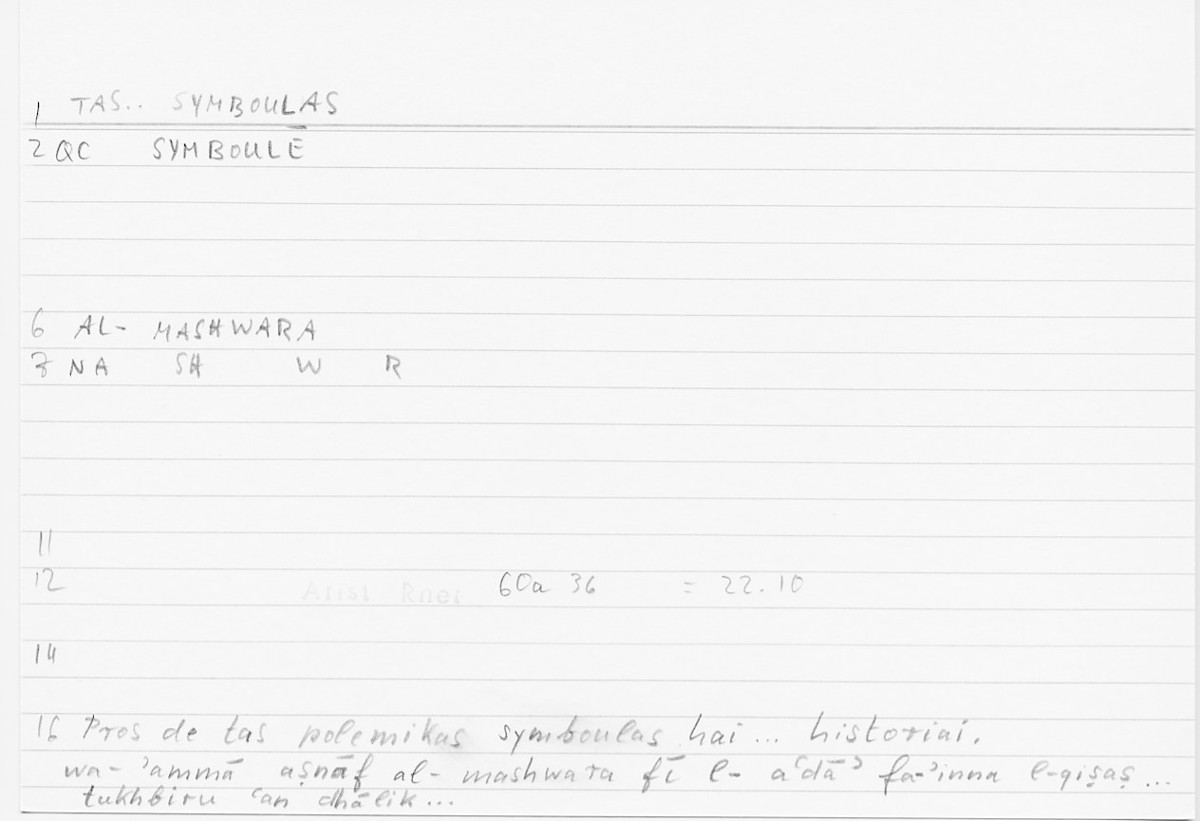 1 TAS.. SYMBOULAS
2 QC SYMBOULĒ
6 AL- MASHWARA
7 NA SH W R
11
12 Arist Rhet 60a 36 = 22.10
14
16 Pros de tas polemikas symboulas hai... historiai.
wa-ʾammā aṣnāf al-mashwara fī l-aʿdāʾ fa-ʾinna l-qiṣaṣ...
tukhbiru ʿan dhālik...